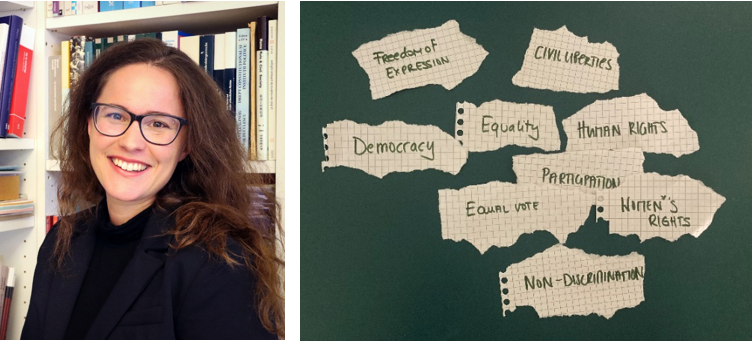 FREEDOM OF
EXPRESSION
CIVIL LIBERTIES
Equality
HUMAN RIGHTS
Democracy
PARTICIPATION
EQUAL VOTE
WOMEN'S
RIGHTS
NON-DISCRIMINATION